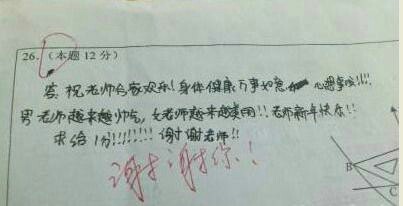 26. (本题 12 分)
答: 祝老师合家欢乐! 身体健康 万事如意 心想事成!!!!
男老师越来越帅气, 女老师越来越美丽!! 老师新年快乐!!
求给1分!!!!!!!! 谢谢老师!!
谢谢你!!
B
C